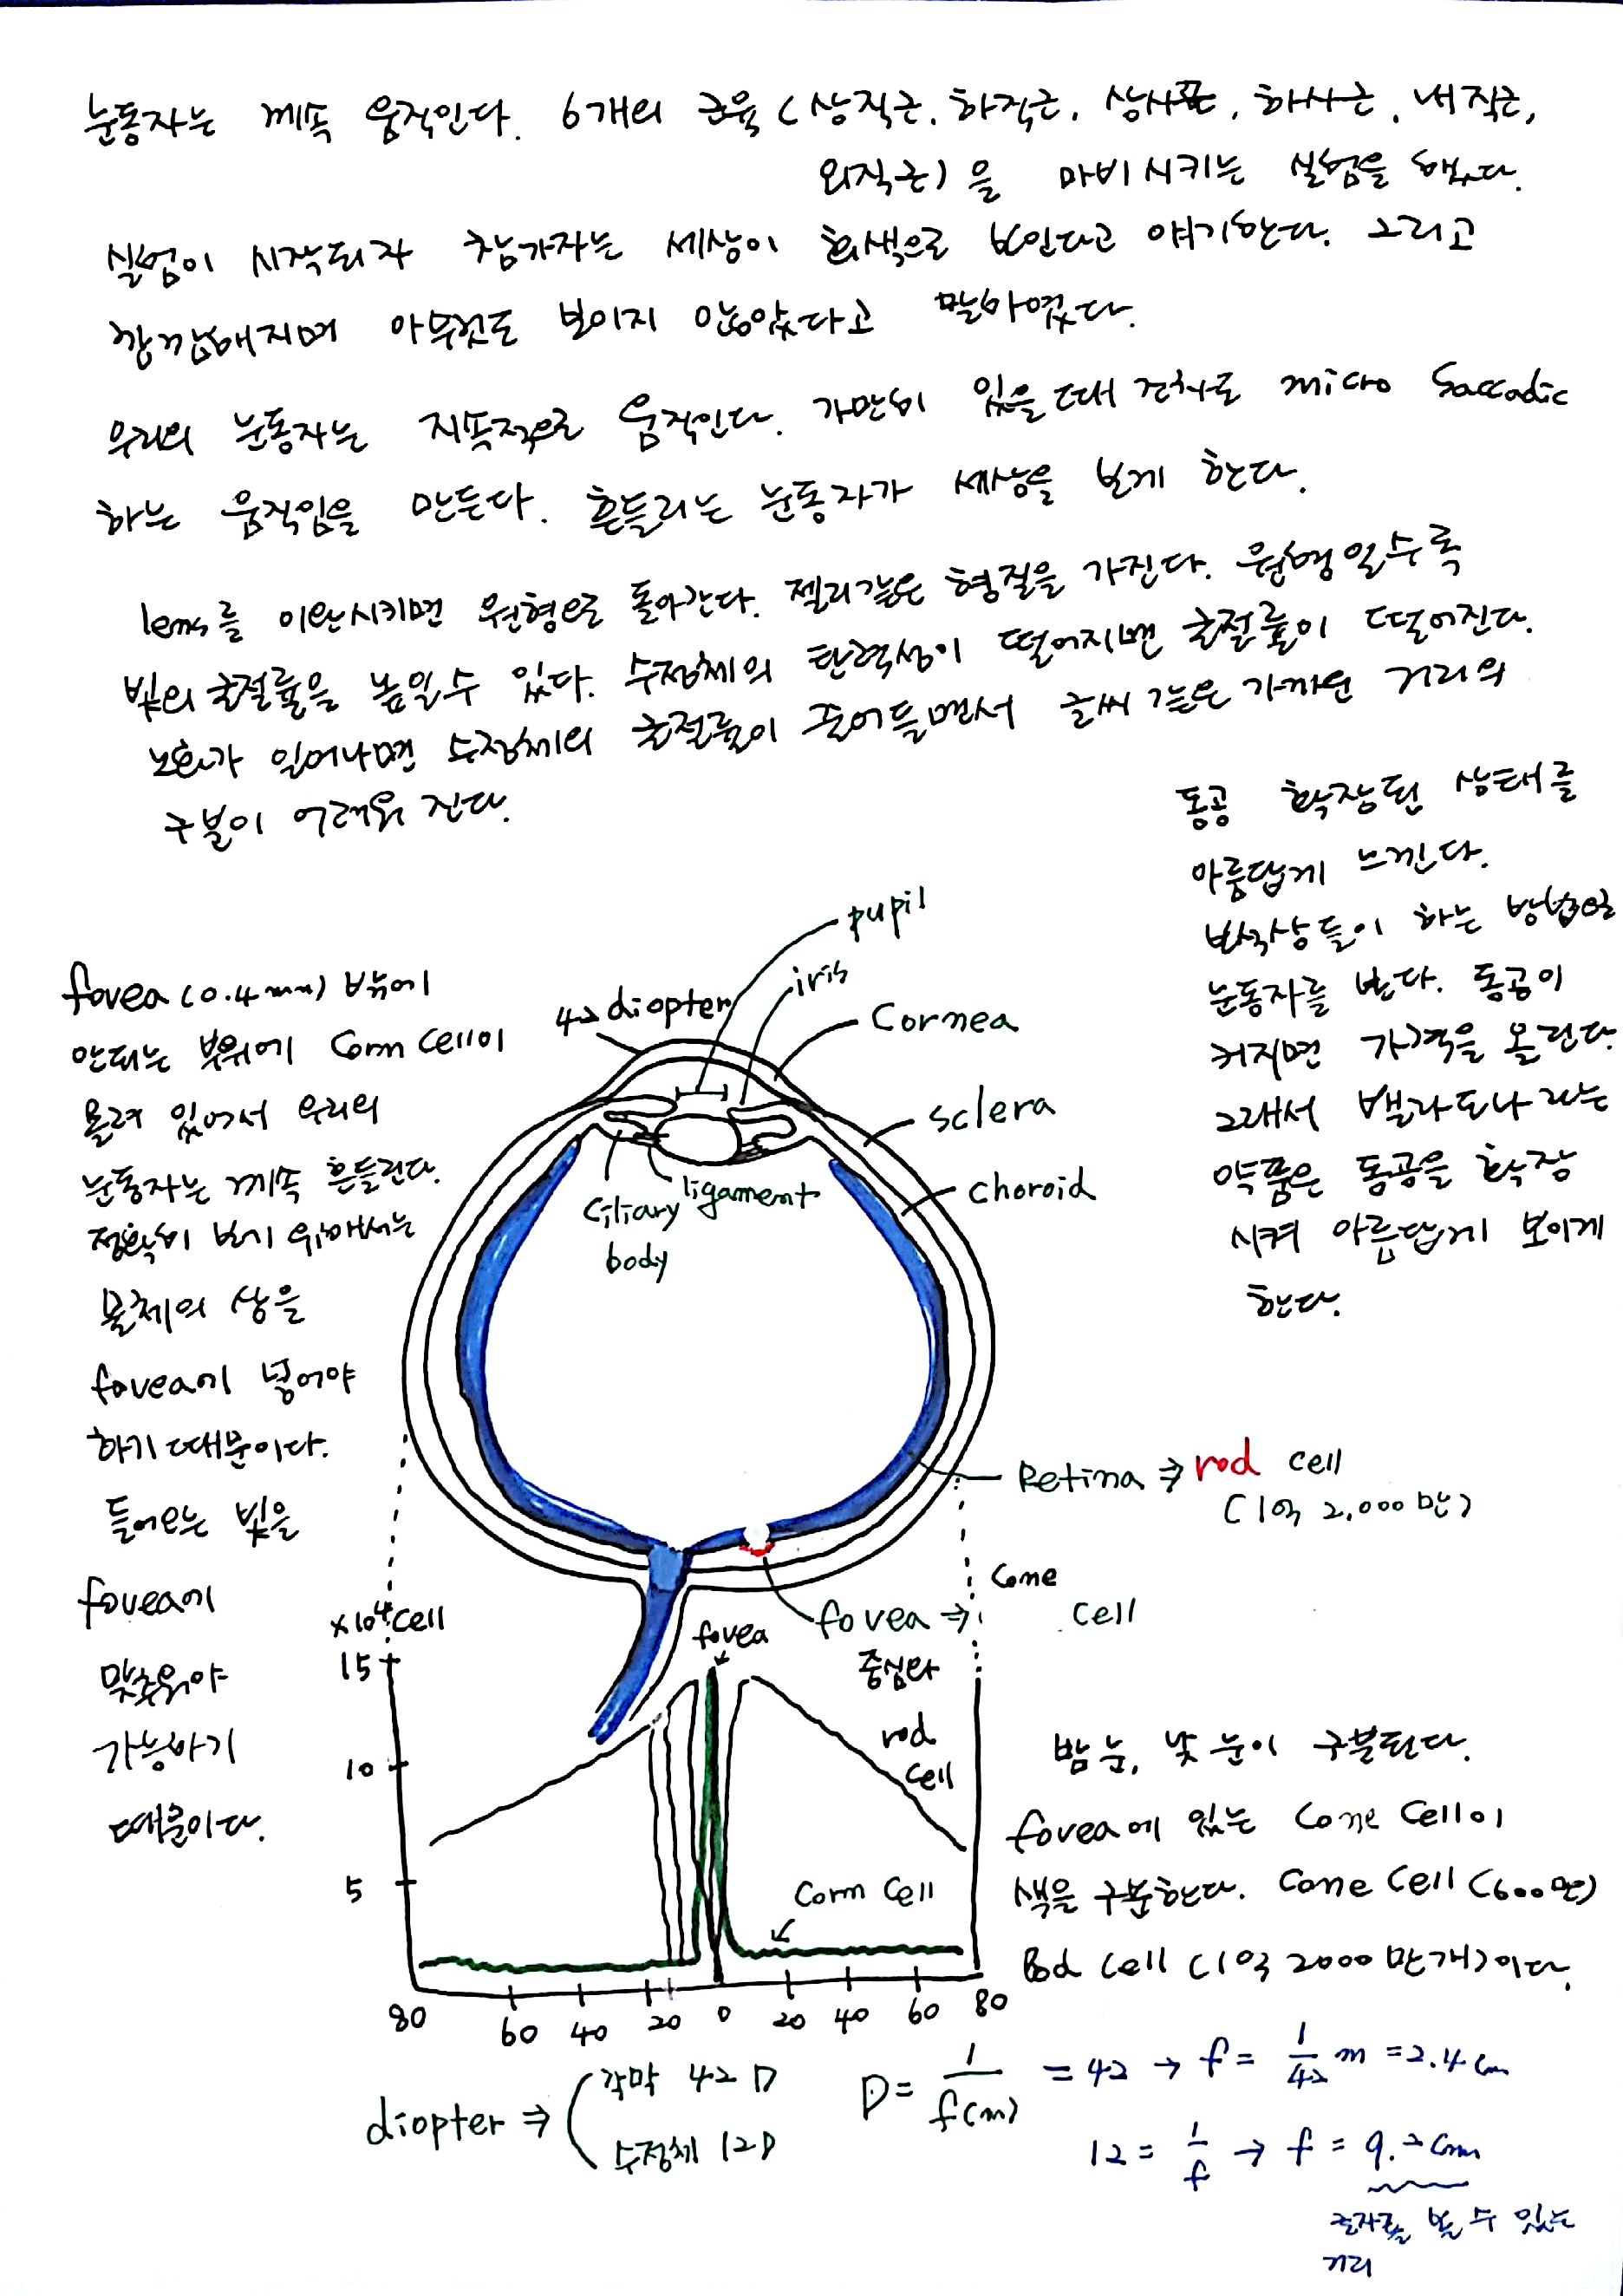 눈동자는 계속 움직인다. 6개의 근육 (상직근, 하직근, 상사근, 하사근, 내직근,
외직근)을 마비시키는 실험을 했다.
실험이 시작되자 참가자는 세상이 회색으로 보인다고 얘기한다. 그리고
깜깜해지며 아무것도 보이지 않았다고 말하였다.
우리의 눈동자는 지속적으로 움직인다. 가만히 있을 때 전체로 micro Saccadic
하는 움직임을 만든다. 흔들리는 눈동자가 세상을 보게 한다.
lens를 이완시키면 원형으로 돌아간다. 젤리같은 형질을 가진다. 원형일수록
빛의 굴절률을 높일수 있다. 수정체의 탄력성이 떨어지면 굴절률이 떨어진다.
노화가 일어나면 수정체의 굴절률이 줄어들면서 글씨 같은 가까운 거리의
구분이 어려워 진다.
동공 확장된 상태를
아름답게 느낀다.
보석상들이 하는 방법으로
눈동자를 본다. 동공이
커지면 가격을 올린다.
그래서 벨라도나 라는
약품은 동공을 확장
시켜 아름답게 보이게
한다.
fovea (0.4mm) 밖에
안되는 부위에 Corn Cell이
몰려 있어서 우리의
눈동자는 계속 흔들린다.
정확히 보기 위해서는
물체의 상을
fovea에 넣어야
하기 때문이다.
들어오는 빛을
fovea에
맞추워야
가능하기
때문이다.
pupil
iris
42 diopter
Cornea
sclera
choroid
ligament
Ciliary
body
Retina ⇒ rod cell
(1억 2,000만)
fovea ⇒ Cone
cell
중심와
×10⁴ cell
15
10
5
fovea
rod
cell
Corn Cell
80 60 40 20 0 20 40 60 80
밤 눈, 낮 눈이 구분된다.
fovea에 있는 Cone Cell이
색을 구분한다. Cone Cell (600만)
Rod Cell (1억 2000만개)이다.
diopter ⇒ ( 각막 42D
수정체 12D
D = 1/f(m) = 42 → f = 1/42 m = 2.4cm
12 = 1/f → f = 9.2cm
글자를 볼 수 있는
거리